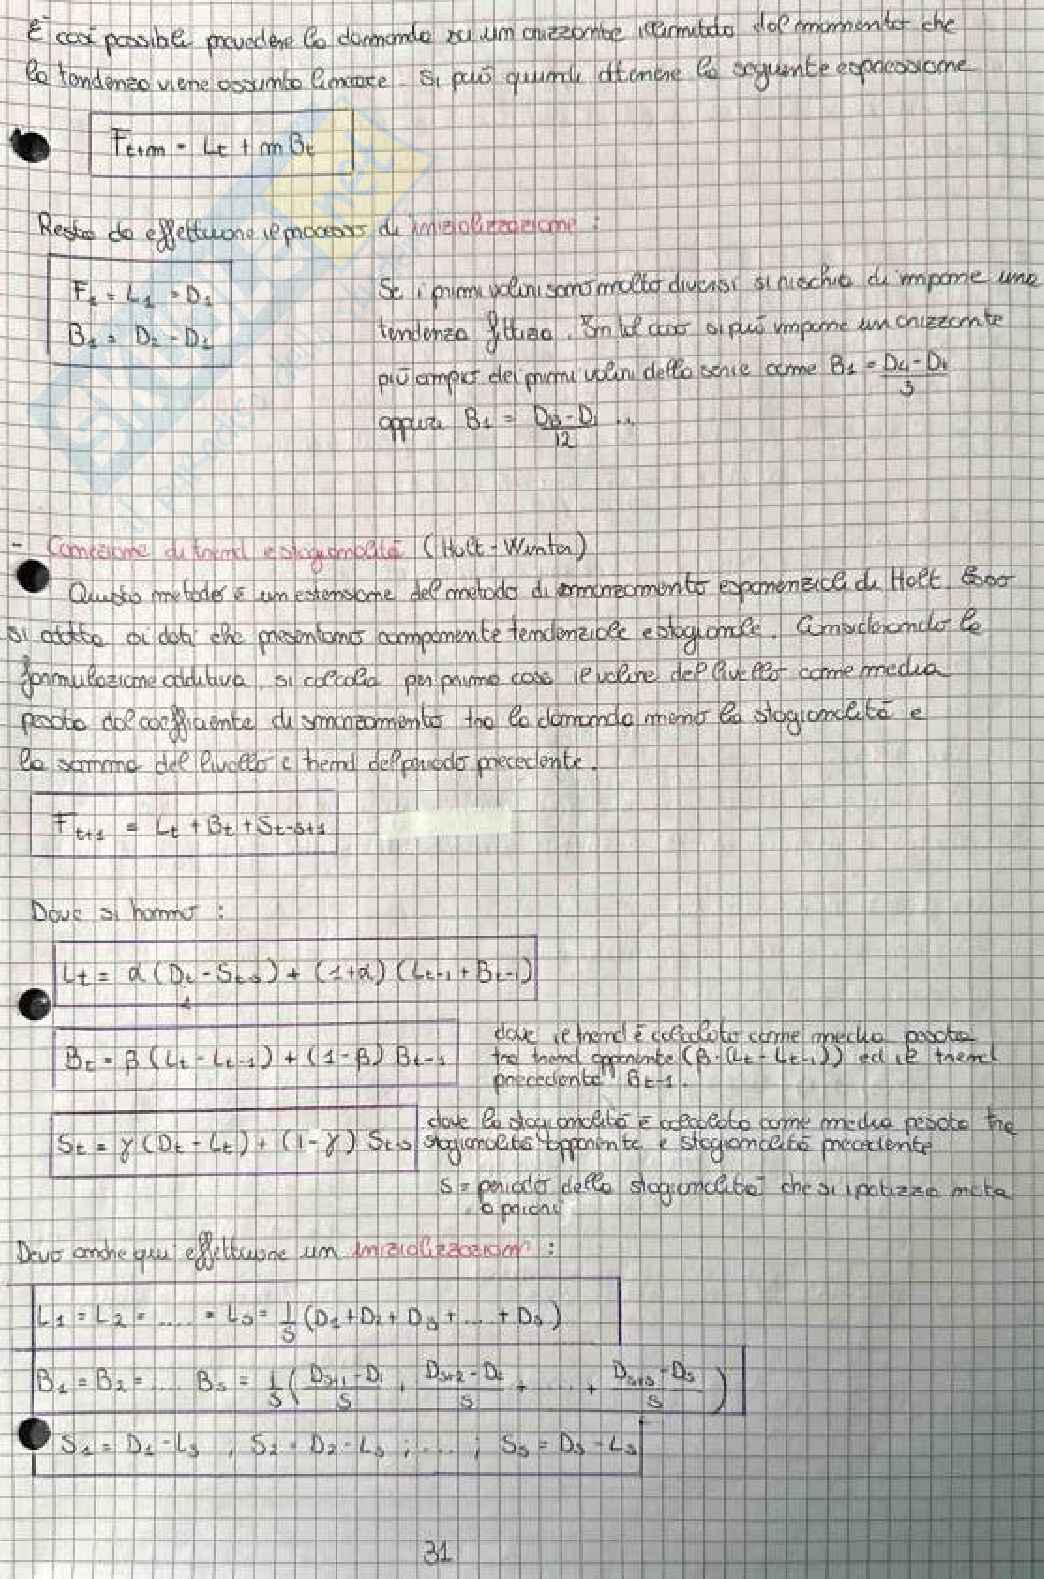 È così possibile prevedere la domanda su un orizzonte illimitato dal momento che
la tendenza viene assunta lineare. Si può quindi ottenere la seguente espressione
Ft+m = Lt + m Bt
Resta da effettuare il processo di inizializzazione :
F1 = L1 = D1
B1 = D2 - D1
Se i primi valori sono molto diversi si rischia di imporre una
tendenza fittizia. In tal caso si può imporre un orizzonte
più ampio dei primi valori della serie come B1 = (D4 - D1)/3
oppure B1 = (D13 - D1)/12 ...
- Correzione di trend e stagionalità (Holt-Winter)
Questo metodo è un'estensione del metodo di smorzamento esponenziale di Holt. Esso
si adatta ai dati che presentano componente tendenziale e stagionale. Considerando la
formulazione additiva, si calcola per prima cosa il valore del livello come media
pesata dal coefficiente di smorzamento tra la domanda meno la stagionalità e
la somma del livello e trend del periodo precedente.
Ft+1 = Lt + Bt + St-s+1
Dove si hanno :
Lt = α (Dt - St-s) + (1+α) (Lt-1 + Bt-1)
Bt = β (Lt - Lt-1) + (1-β) Bt-1
dove il trend è calcolato come media pesata
tra trend apparente (β·(Lt - Lt-1)) ed il trend
precedente Bt-1.
St = γ (Dt - Lt) + (1-γ) St-s
dove la stagionalità è calcolata come media pesata tra
stagionalità apparente e stagionalità precedente
s = periodo della stagionalità che si ipotizza nota
a priori
Devo anche qui effettuare un inizializzazioni :
L1 = L2 = .... = Ls = 1/s (D1 + D2 + D3 + ... + Ds)
B1 = B2 = .... Bs = 1/s ( (Ds+1 - D1)/s + (Ds+2 - D2)/s + .... + (Ds+s - Ds)/s )
S1 = D1 - Ls , S2 = D2 - Ls ; .... ; Ss = Ds - Ls
31